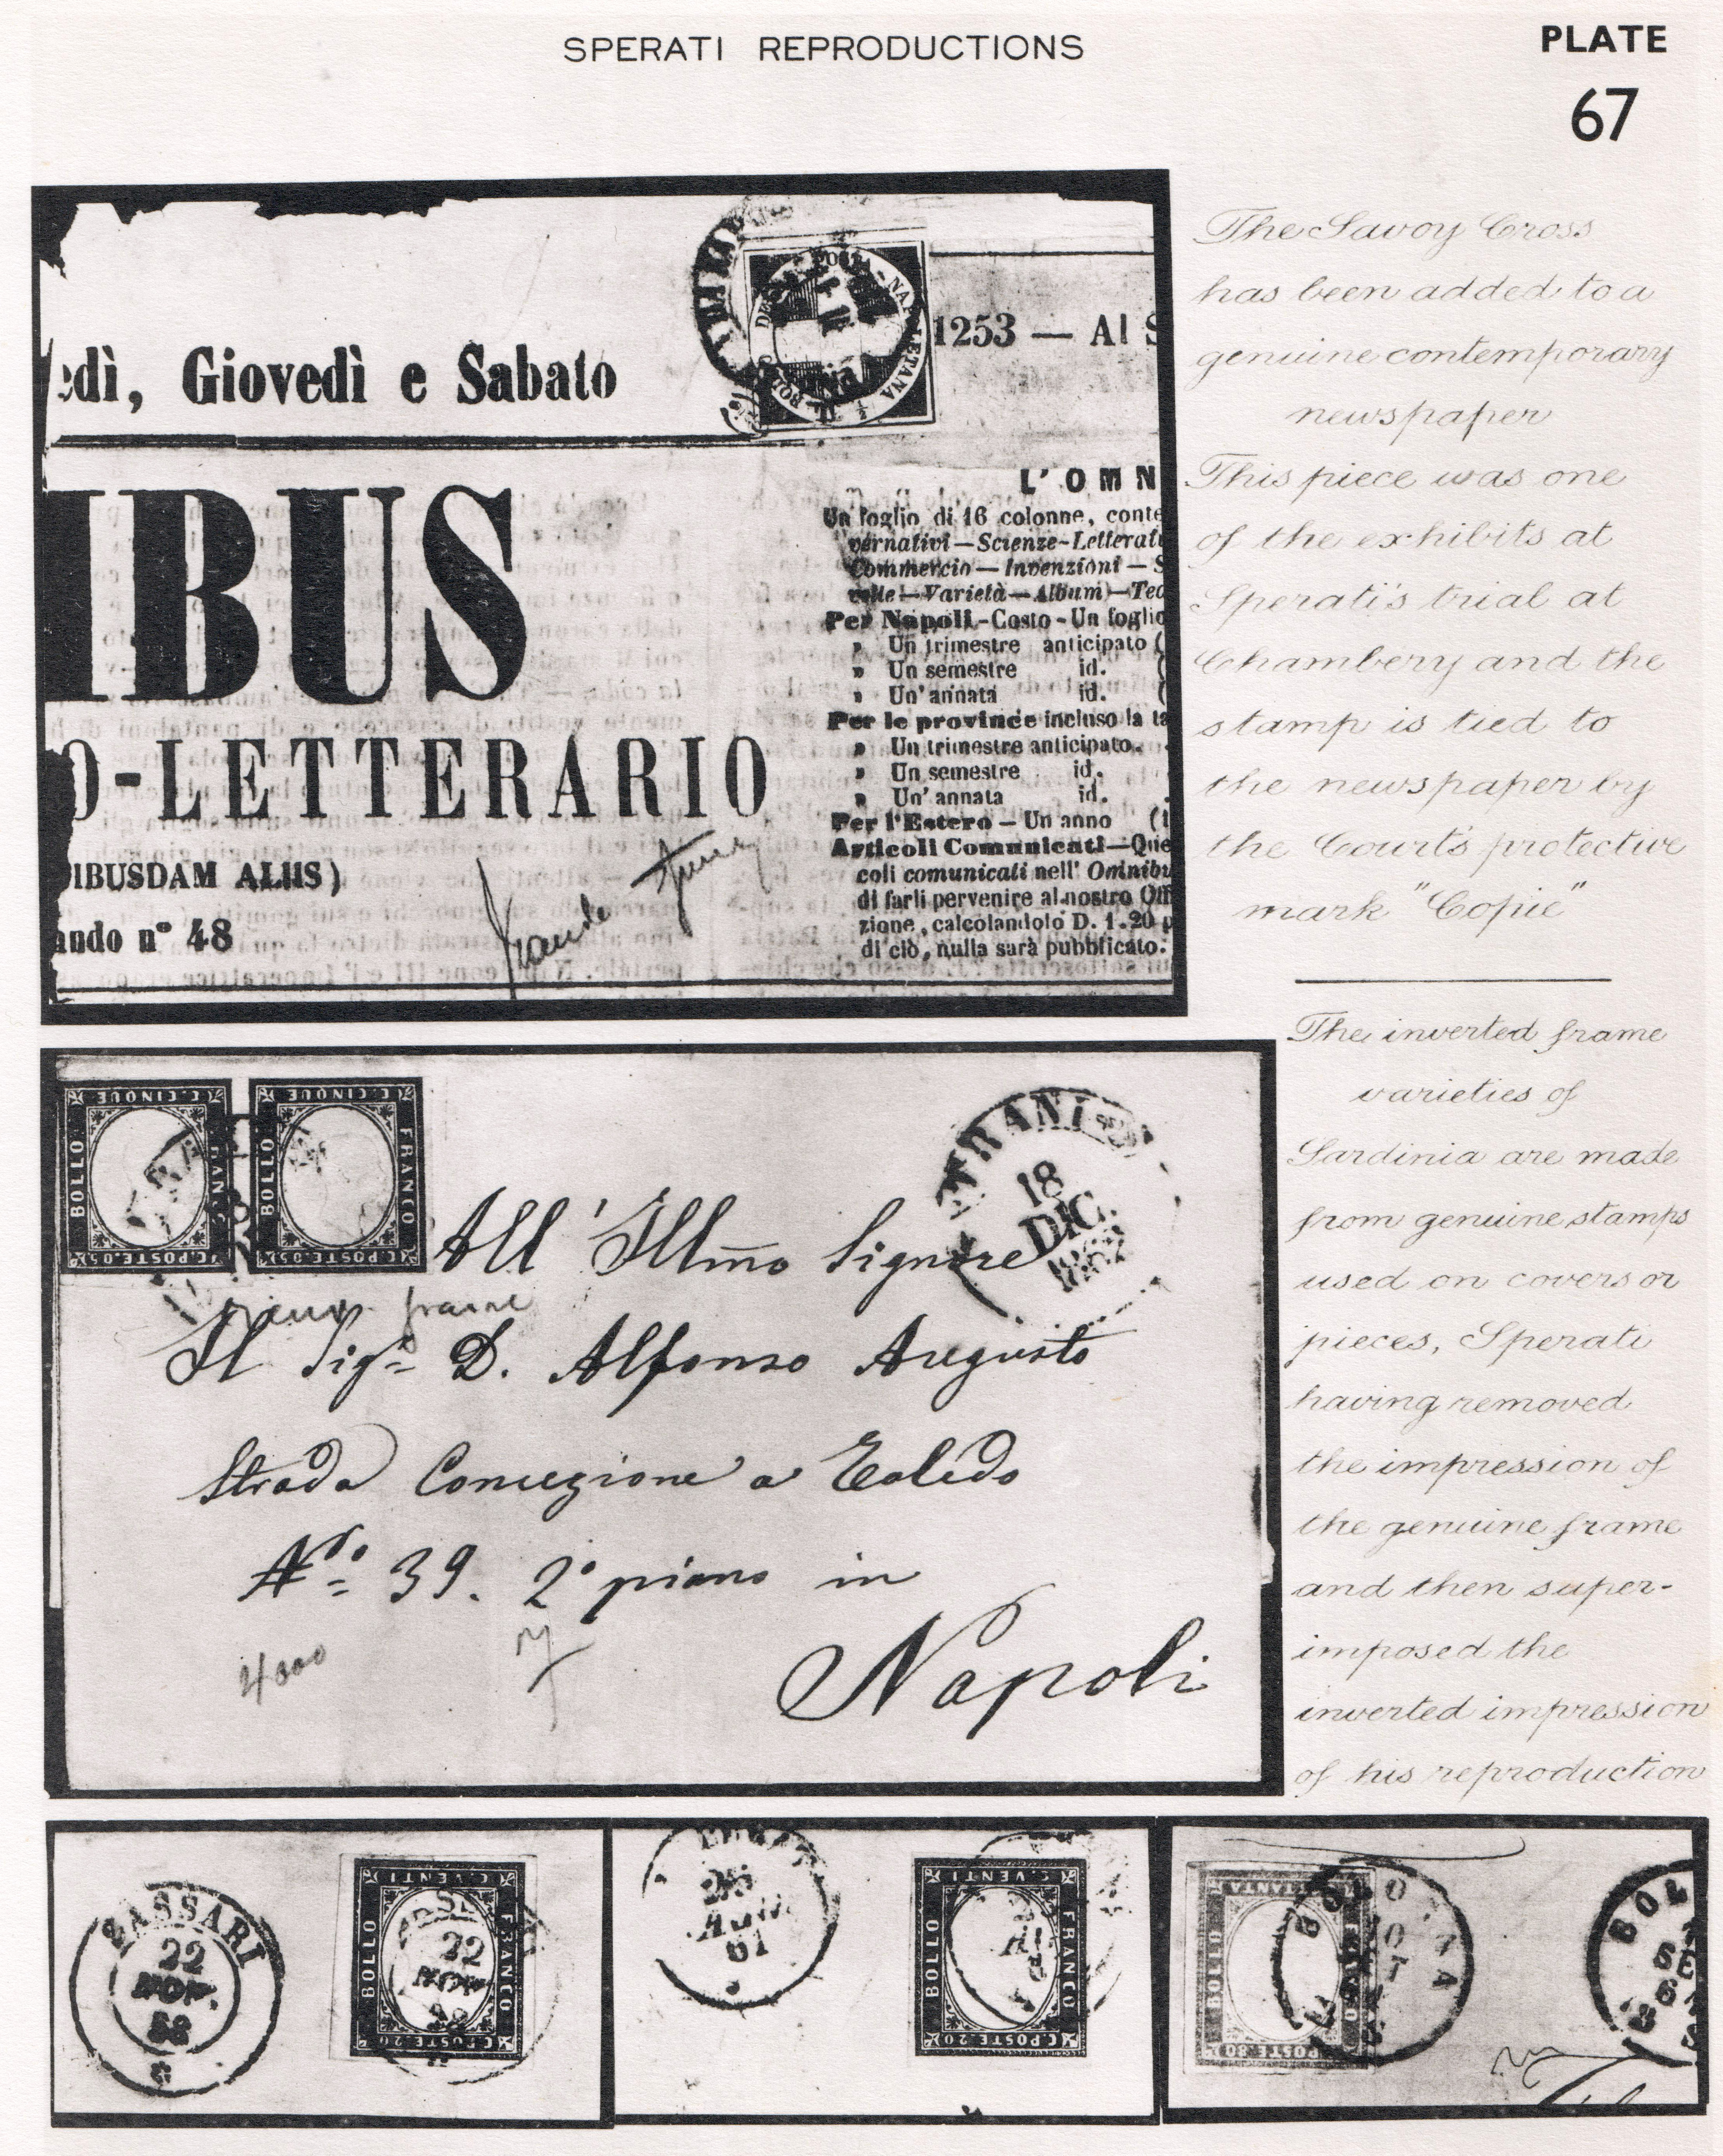 SPERATI REPRODUCTIONS
PLATE
67
edì, Giovedì e Sabato
1253 — Al S
IBUS
O-LETTERARIO
IBUSDAM ALIIS)
ando n° 48
L'OMN
Un foglio di 16 colonne, conte
vernativi—Scienze-Letterat
Commercio — Invenzioni — S
velle—Varietà—Album)—Tec
Per Napoli-Costo-Un foglio
» Un trimestre anticipato (
» Un semestre id. (
» Un'annata id. (
Per le province incluso la ta
» Un trimestre anticipato.
» Un semestre id.
» Un'annata id.
Per l'Estero — Un anno (
Articoli Comunicati—Que
coli comunicati nell' Omnibu
di farli pervenire al nostro Uff
zione, calcolandolo D. 1.20 p
di ciò, nulla sarà pubblicato.
The Savoy Cross
has been added to a
genuine contemporary
newspaper
This piece was one
of the exhibits at
Sperati's trial at
Chambery and the
stamp is tied to
the newspaper by
the Court's protective
mark "Copie"
The inverted frame
varieties of
Sardinia are made
from genuine stamps
used on covers or
pieces, Sperati
having removed
the impression of
the genuine frame
and then super-
imposed the
inverted impression
of his reproduction
C. CINQUE
BOLLO
FRANCO
C.POSTE.05
C. CINQUE
BOLLO
FRANCO
C.POSTE.05
TRANI
18
DIC.
1862
All' Illmo Signore
frame
Il Sigr D. Alfonso Augusto
Strada Concezione a Toledo
No 39. 2° piano in
Napoli
4000
SASSARI
22
NOV.
58
C. VENTI
BOLLO
FRANCO
C.POSTE.20
22
NOV
61
C. VENTI
BOLLO
FRANCO
C.POSTE.20
BOLLO
C.POSTE.80
BOL